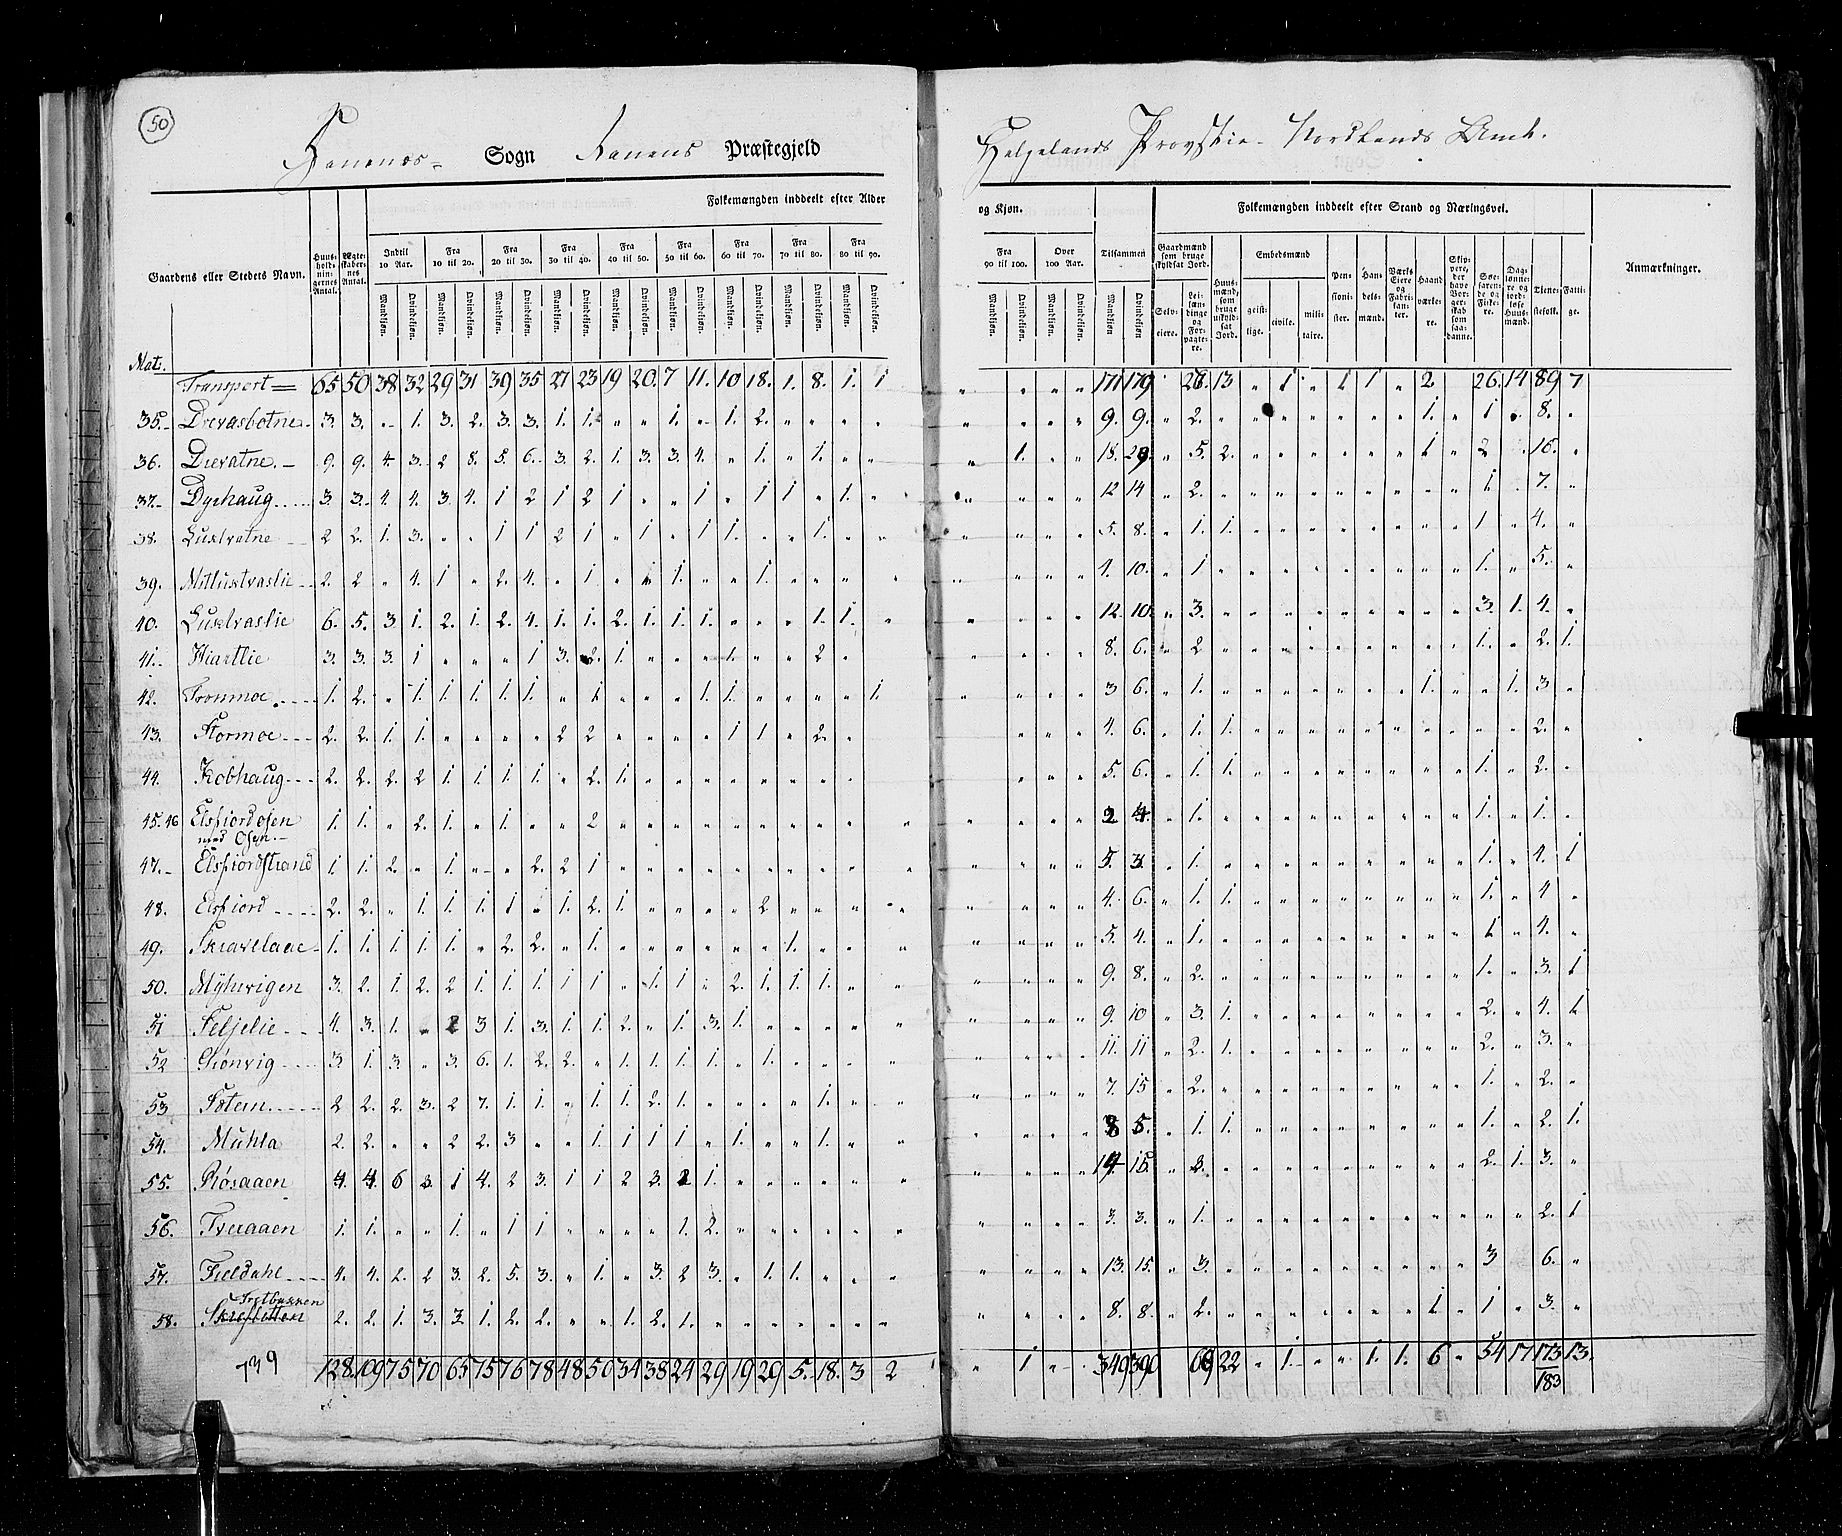 50
Ranens Sogn Ranens Præstegjeld
Helgelands Provstie Nordlands Amt.
Folkemængden inddeelt efter Alder
og Kjøn.
Folkemængden inddeelt efter Stand og Næringsvei.
Gaardens eller Stedets Navn.
Huusholdningernes Antal.
Ægteskabernes Antal.
Indtil 10 Aar.
Fra 10 til 20.
Fra 20 til 30.
Fra 30 til 40.
Fra 40 til 50.
Fra 50 til 60.
Fra 60 til 70.
Fra 70 til 80.
Fra 80 til 90.
Fra 90 til 100.
Over 100 Aar.
Tilsammen
Mandkjøn. Qvindekjøn.
Gaardmænd som bruge skyldsat Jord.
Selveiere.
Leilændinge og Forpagtere.
Huusmænd, som bruge uskyldsat Jord.
Embedsmænd
geistlige. civile. militaire.
Pensionister.
Handelsmænd.
Værks Eiere og Fabrikanter.
Haandværkere.
Skippere, der have Borgerskab som saadanne.
Søefarende og Fiskere.
Daglønnere og jordløse Huusmænd.
Tjenestefolk.
Fattige.
Anmærkninger.
Mat:
Transport = 65 50 38 32 29 31 39 35 27 23 19 20 7 11 10 18 1 8 1 1 171 179 13 1 1 1 2 26 14 89 7
35. Drevasbotne 3. 3. 1. 3. 2. 3. 3. 1. 1. 1. 1. 2. 9. 9. 2. 1. 1 8.
36. Drevatne 9. 9. 4. 3. 2 8. 5. 6. 3. 2. 1. 3. 3. 4. 1. 1. 1. 18. 5. 2. 1 2 16.
37. Dyrhaug 3. 3. 4. 4. 3. 4. 1 2 1 2 1 1 1 1 1. 12 14 2. 1 7.
38. Lustvatne 2 2. 1. 3. 1 1 2 1 1 1 1. 1. 5. 8. 1. 1. 1 4.
39. 2. 2 4. 1 2. 4. 1 1. 1. 4. 10. 1 1. 5.
40. Lustvaslie 6. 5. 3. 1. 2. 1. 2. 4. 1. 1. 2. 1. 1. 1. 1. 1. 12. 10. 3. 3. 1. 4.
41. Hiartlie 3. 3. 3. 1 1 3. 2. 1. 1. 2. 8. 6. 2 1. 2. 1.
42. Tronmoe 1. 2. 1. 1. 1. 1. 1. 1 1. 1. 1. 3 6. 1. 1. 1. 3.
43. Stormoe 2. 2. 1. 1. 2 2 1 1 2. 4. 6. 1. 1. 1. 2.
44. Kobhaug 2. 2. 2. 2 1. 1. 1. 1. 2. 1. 5. 6. 1. 1 1. 2.
45. 46 Elsfiordosen
med Osen 1. 1. 2. 1. 1. 2 2 4. 1. 1. 1.
47. Elsfiordstrand 1. 1. 2. 1. 2. 2 1 5. 3. 1. 1. 4. 1
48. Elsfiord 2. 2. 1. 1. 1. 1. 1. 2. 1. 2 4. 6. 1. 1. 1. 4
49. 1. 1. 1. 1. 1. 2. 2. 1. 1. 5. 4. 1. 1 4.
50. 3. 2. 1. 2. 2 1. 1. 1. 1 1 1. 1. 2. 1. 1. 1. 9. 8. 2. 1. 3. 1
51 4. 3. 1. 3 1. 3. 1. 1. 2. 1. 3. 1. 9. 10 3. 1. 2. 4. 1
52 Grønvig 3. 1 3. 3. 6. 1. 2. 2. 1. 1. 1. 1. 1. 11. 11 2. 1. 2. 3.
53 2 2. 2. 3. 2 7. 1. 1. 1. 1. 2. 1. 1. 7. 15 2. 1. 2.
54. Muhla 2. 2. 2 2. 3 1. 1. 1. 1 1. 1. 5. 1. 1. 1. 2. 1.
55. Røsaaen 4. 4. 6 3. 1 4. 2 3. 1 1 2 3. 1. 2. 1. 3.
56. Tveraaen 1. 1. 1. 1 1 1. 2. 3. 3. 1. 2. 1
57. Fieldahl 4. 4. 2. 2 3. 2. 5. 3. 1. 3. 2 3. 1. 1. 13. 15. 3. 3 6.
58. 2. 2. 1. 3. 3 1. 2. 2. 1. 2. 1. 8. 8. 2. 1 1 3.
739 128 109 75 70 65 75 76 78 48 50 34 38 24 29 19 29 5. 18. 3 2 1 349 390 22 1. 1. 1. 6 54 17 173 13.
183